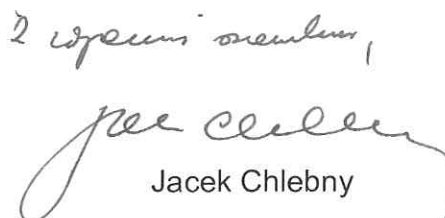 Z wyrazami szacunku,
Jacek Chlebny
Jacek Chlebny